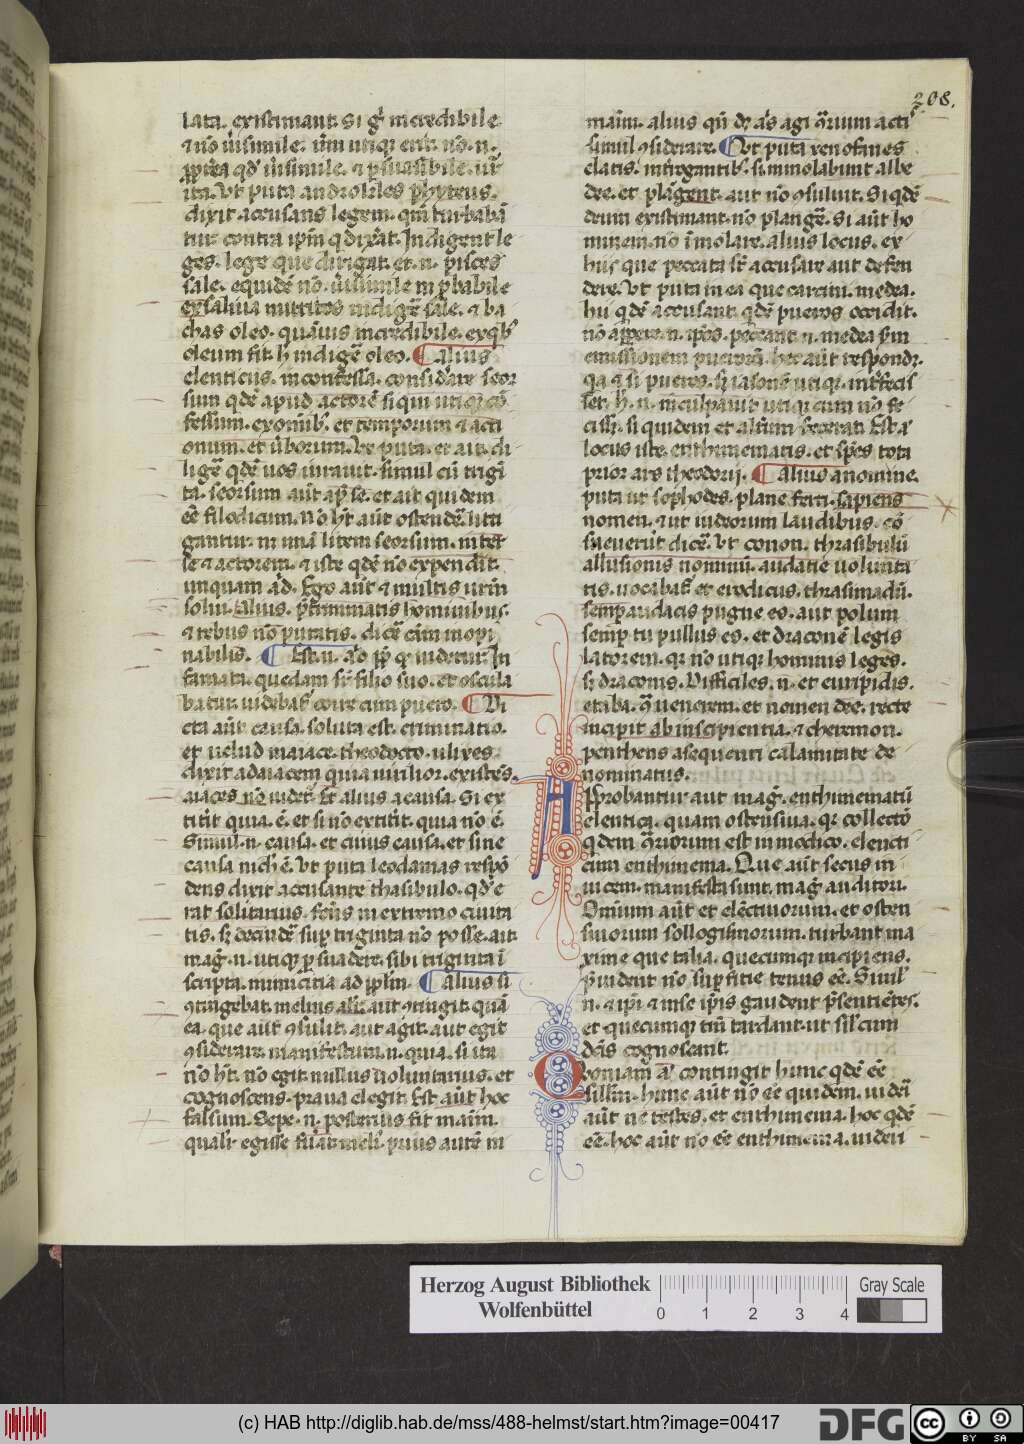 208.
lata. existimant. Si g̊ incredibile
⁊ nō ūisimile. ūm utiqꝫ erit. nō. n.
ꝓpt̾ea qď ūisimile. ⁊ ꝑsuasibile. uī
ita. Ut puta androkles phyteus.
dixit. accusans legem. qm̄ turbabā
tur contra ipm̄ q dixat. Indigent le
ges. lege que dirigat. et. n. pisces
sale. equidē nō. ūisimile ni ꝓbabile
ex salsua nutritos indigē sale. ⁊ ba
chas oleo. quāuis incredibile. ex qbꝫ
oleum fit. h̄ indigē oleo. ¶ alius
elenticus. inconfessa. considāre seor
sum qdē apud actorē si qui utiqꝫ cō
fessum. ex omībꝫ. et temporum ⁊ acti
onum. et ūborum. Ut puta. et ait. di
ligē qdē uos iurauit. simul cū trigī
ta. seorsum aūt ap̄ se. et ait quidem
eē filodicum. Nō hꝫ aūt ostendē. liti
gantur. ni unā litem seorsum. inter
se ⁊ actorem. ⁊ iste qdē nō expendit
unquam ad. Ego aūt ⁊ multis urm̄
solui. Alius. p̄criminatis hominibus.
⁊ rebus nō putatis. dicē cām inopi
nabilis. ¶ Est. n. ꝓp qꝫ uidetur In
famata. quedam sr̄ filio suo. et oscula
batur. uidebat̄ coire cum puero. ¶ Di
cta aūt causa. soluta est. criminatio.
et uelud in aiace. theodocto. ulixes
dixit ad aiacem quia uirilior. existēs.
aiaces. nō uidet̄. Et alius a causa. Si ex
titit quia. ē. et si nō extitit. quia nō ē.
Simul. n. causa. et cuius causa. et sine
causa nich̄ ē. Ut puta leodamas respō
dens dixit accusante thasibulo. qď e
rat solitarius. fcūs in extremo ciuita
tis. sꝫ decidē suꝑ triginta nō posse. ait
mag̾. n. utiqꝫ ꝑsuadere. sibi triginta ī
scripta. inimicitia ad ipl̄m. ¶ alius si
ꝯtingebat. melius alit̄ aūt ꝯtingit. quā
ea. que aūt ꝯsulit. aut agit. aut egit
ꝯsiderare manifestum. n. quia. si ita
nō hꝫ. nō egit nullus uoluntarius. et
cognoscens. praua elegit. Est aūt hoc
falsum. Sepe. n. posterius fit maim.
qualr̄. egisse fuat meli. prius autē in
maim. alius qn̄ dꝫ aꝉs agi q̄rium acti
simul ꝯsiderare. ¶ Ut puta xenofanes
elatis. introgantibꝫ. si immolabunt albe
dee. et plangent. aut nō ꝯsuluit. Si qdē
deum existimant. nō plangē. Si aūt ho
minem. nō īmolare. alius locus. ex
hiis que peccata sr̄ accusare aut defen
dere. Ut puta in ea que carcini. medea.
hii qdē accusant. qdē pueros occidit.
nō appere. n. ip̄os. peccauit. n. medea ꝑm
emissionem puerorū. hec aūt respondꝫ.
qa ⁊ si pueros. sꝫ iasonē utiqꝫ. intfecis
set. h̄. n. inculpauit utiqꝫ cum nō fe
cisset. si quidem et altum fecerat. Est ī
locus iste. enthimematis. et sp̄es tota
prior ars theodorij. ¶ alius a nomine.
puta ut sophodes. plane ferri. sapiens
nomen. ⁊ ut in deorum laudibus. cō
sueuerūt dicē. Ut conon. thrasibulū
allusionis nominū. audatie uolunta
tis. uocabat̄ et erodicus. thrasimadū.
semꝑ audacis pugne es. aut polum
semꝑ tu pullus es. et draconē legis
latorem. qꝫ nō utiqꝫ hominis leges.
sꝫ draconis. Difficiles. n. et euripidis.
etiba. q̄ uenerem. et nomen dee. recte
incipit ab inscipientia. ⁊ cheremon.
pentheus a sequenti calamitate de
nominatus.
Aꝓbantur aut mag̾. enthimematū
elentica. quam ostensiua. qꝫ collectō
qdem q̄riorum est in modico. elencti
cum enthimema. Que aūt secus in
uicem. manifesta sunt. mag̾ auditori.
Omnium aūt et elēctiuorum. et osten
siuorum sollogismorum. turbant ma
xime que talia. quecumqꝫ incipiens.
p̄uident nō suꝑfitie tenus eē. Simil̾
n. ⁊ ip̄i. ⁊ in se ip̄is gaudent p̄sentientes.
et quecumqꝫ tm̄ tardant. ut sil̾ cum
dc̄is cognoscant.
Quoniam aūt contingit hunc qdē eē
sillm̄. hunc aūt nō eē quidem. uideri
aūt. ne testes. et enthimema. hoc qdē
eē. hoc aūt nō eē enthimema. uideri
Herzog August Bibliothek
Wolfenbüttel
0 1 2 3 4
Gray Scale
(c) HAB http://diglib.hab.de/mss/488-helmst/start.htm?image=00417
DFG
cc BY SA